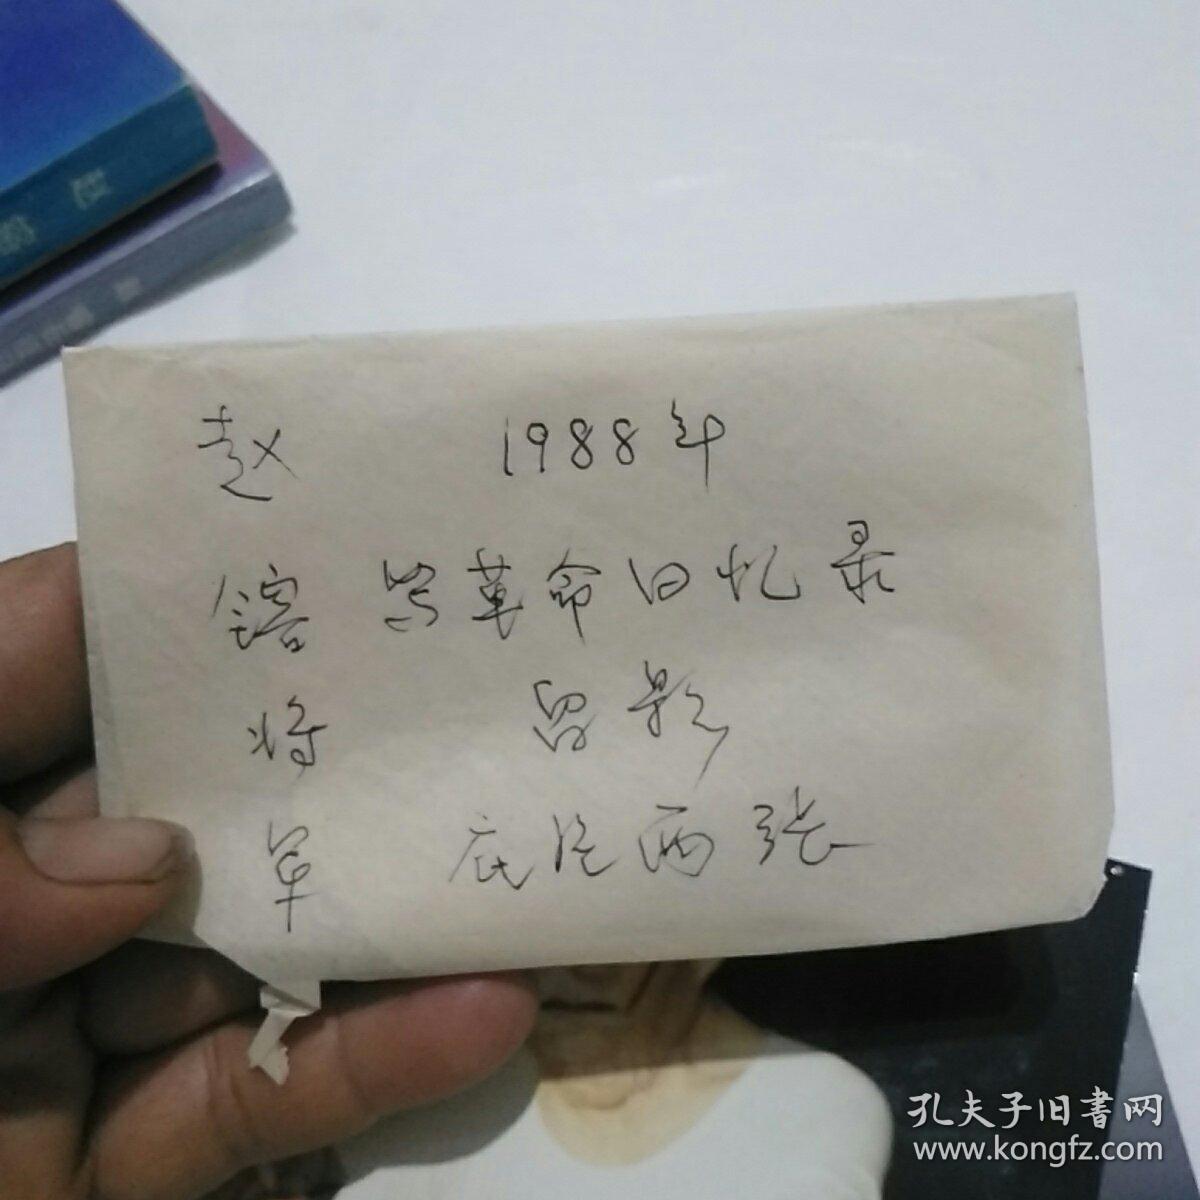 赵镕将军
1988年
写革命回忆录
留影
底片两张
孔夫子旧書网
www.kongfz.com